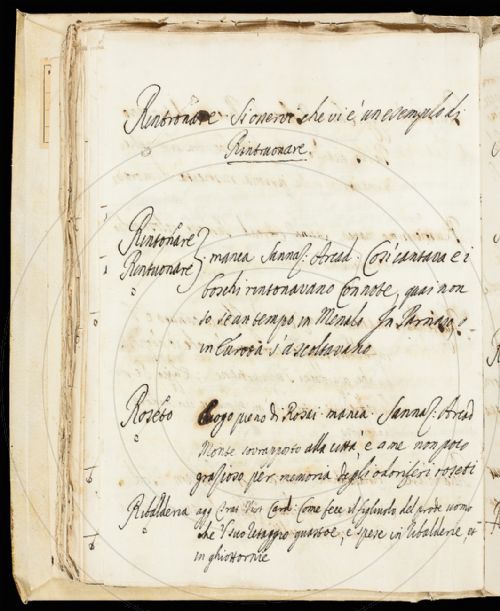 Rintronare. Si osservi che vi è un esempio di
Rintruonare
Rintonare
Rintuonare } manca Sannaz: Arcad. Così cantava e i
boschi rintonavano Con note, quai non
so, se an tempo in Menalo In Parnaso,
in Eurota s'ascoltavano
Rosebo luogo pieno di Rosai. manca. Sannaz: Arcad
Monte sovrapposto alla città, è a me non poco
grazioso per memoria degli odoriferi roseti
Ribalderia agg. Come fece il figliuolo del prode uomo
che 'l suo retaggio guastoe, e spese in ribalderie, et
in ghiottornie